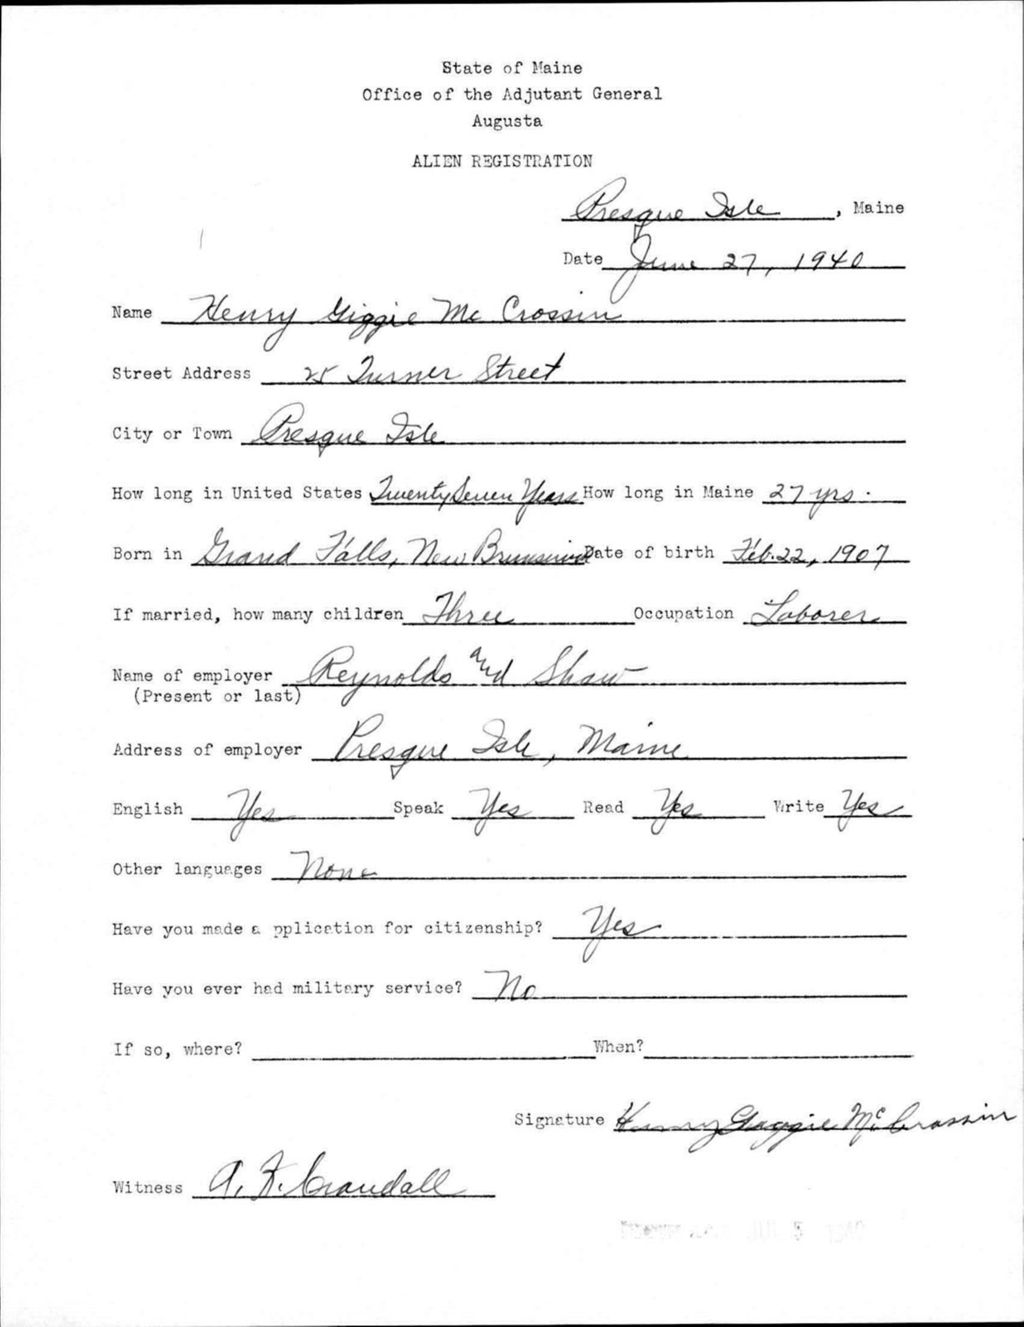 State of Maine
Office of the Adjutant General
Augusta
ALIEN REGISTRATION
Presque Isle, Maine
Date June 27, 1940
Name Henry Giggie Mc Crossin
Street Address 25 Turner Street
City or Town Presque Isle
How long in United States Twenty Seven Years How long in Maine 27 yrs.
Born in Grand Falls, New Brunswick Date of birth Feb. 22, 1907
If married, how many children Three Occupation Laborer
Name of employer Reynolds and Shaw
(Present or last)
Address of employer Presque Isle, Maine
English Yes Speak Yes Read Yes Write Yes
Other languages None
Have you made a pplication for citizenship? Yes
Have you ever had military service? No
If so, where? When?
Signature Henry Giggie McCrossin
Witness A. F. Crandall